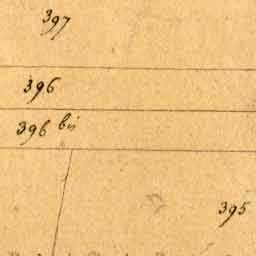 397
396
396 bis
395